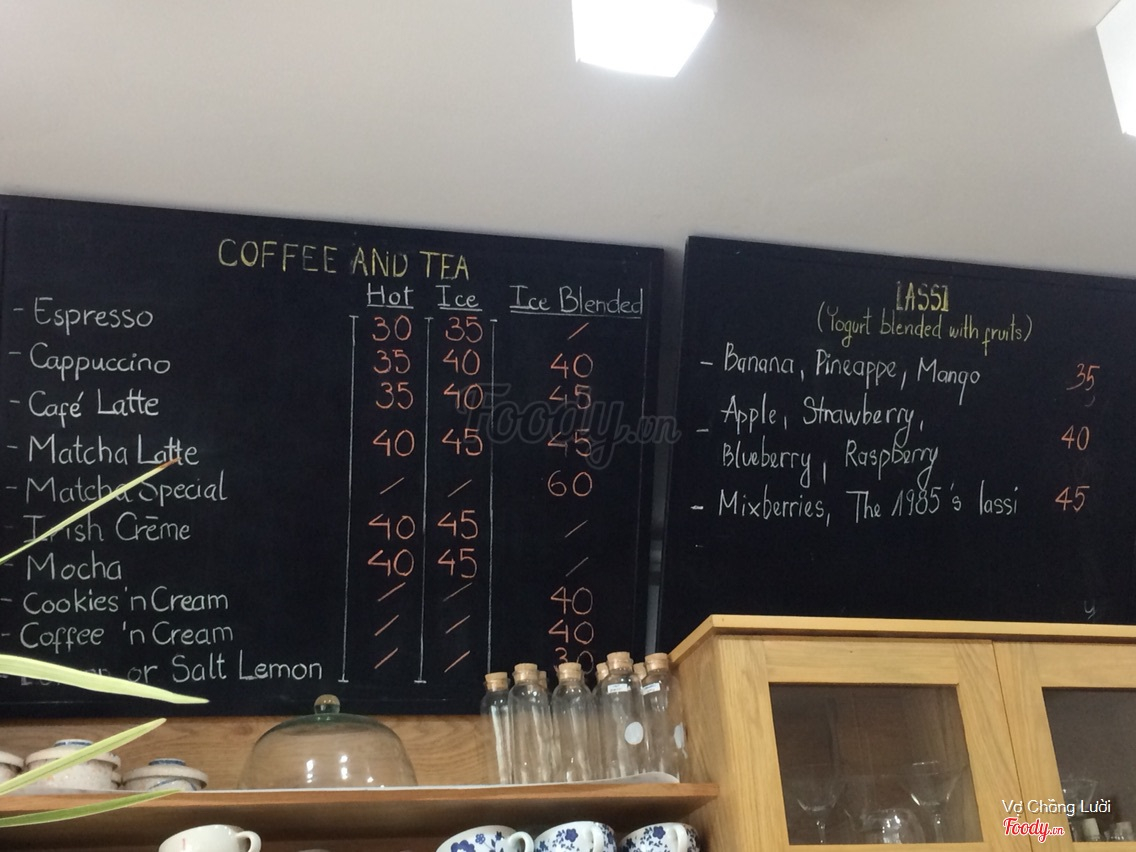 COFFEE AND TEA
Hot Ice Ice Blended
- Espresso 30 35 /
- Cappuccino 35 40 40
- Café Latte 35 40 45
- Matcha Latte 40 45 45
- Matcha Special / / 60
- Irish Crēme 40 45 /
- Mocha 40 45 /
- Cookies 'n Cream / / 40
- Coffee 'n Cream / / 40
or Salt Lemon / / 30
LASSI
(Yogurt blended with fruits)
- Banana, Pineappe, Mango 35
- Apple, Strawberry,
Blueberry, Raspberry 40
- Mixberries, The 1985's lassi 45
Foody.vn
Vợ Chồng Lười
Foody.vn